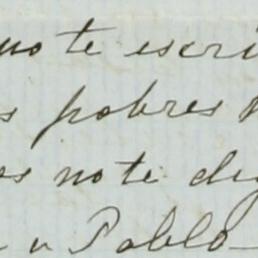 no te escri
s pobres
os no te dig
a Pablo